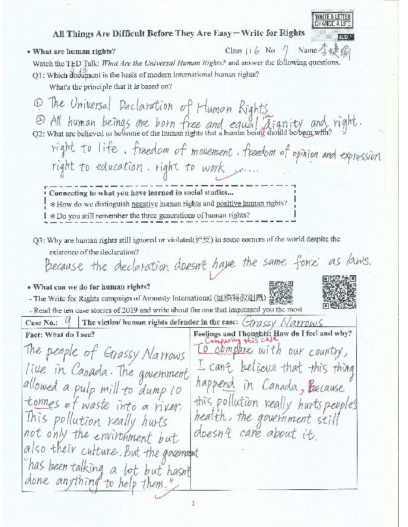 WRITE A LETTER
CHANGE A LIFE
All Things Are Difficult Before They Are Easy – Write for Rights
• What are human rights? Class 116 No 7 Name
Watch the TED Talk: What Are the Universal Human Rights? and answer the following questions.
Q1: Which document is the basis of modern international human rights?
What's the principle that it is based on?
① The Universal Declaration of Human Rights
② All human beings are born free and equal dignity and right.
Q2: What are believed to be some of the human rights that a human being should be born with?
right to life . freedom of movement . freedom of opinion and expression
right to education . right to work ......
Connecting to what you have learned in social studies...
* How do we distinguish negative human rights and positive human rights?
* Do you still remember the three generations of human rights?
Q3: Why are human rights still ignored or violated(侵犯) in some corners of the world despite the
existence of the declaration?
Because the declaration doesn't have the same force as laws.
• What can we do for human rights?
- The Write for Rights campaign of Amnesty International (國際特赦組織)
- Read the ten case stories of 2019 and write about the one that impressed you the most
Case No.: 9 The victim/ human rights defender in the case: Grassy Narrows
Fact: What do I see?
The people of Grassy Narrows
live in Canada. The government
allowed a pulp mill to dump 10
tonnes of waste into a river.
This pollution really hurts
not only the environment but
also their culture. But the government
"has been talking a lot but hasn't
done anything to help them."
Feelings and Thoughts: How do I feel and why?
Comparing this case
To compare with our country,
I can't believe that this thing
happend in Canada, Because
this pollution really hurts people's
health, the government still
doesn't care about it.
1